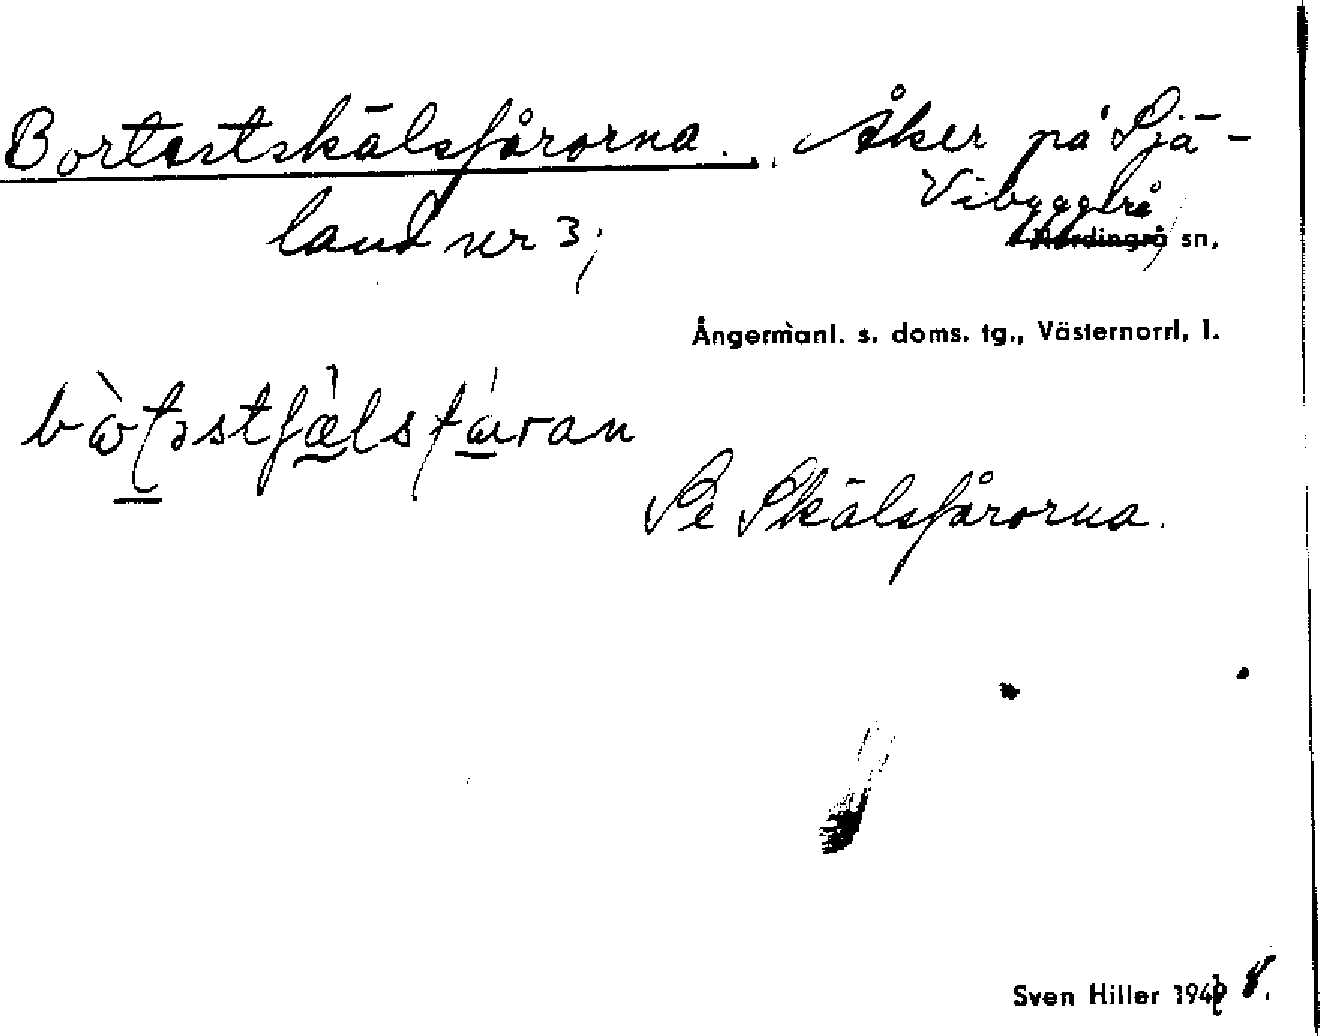 Bortestskälsfårorna... Åker på Själand nr 3;
Vibyggerå
Nordingrå sn,
Ångermanl. s. doms. tg., Västernorrl, l.
Se Skälsfårorna.
Sven Hiller 194 8.